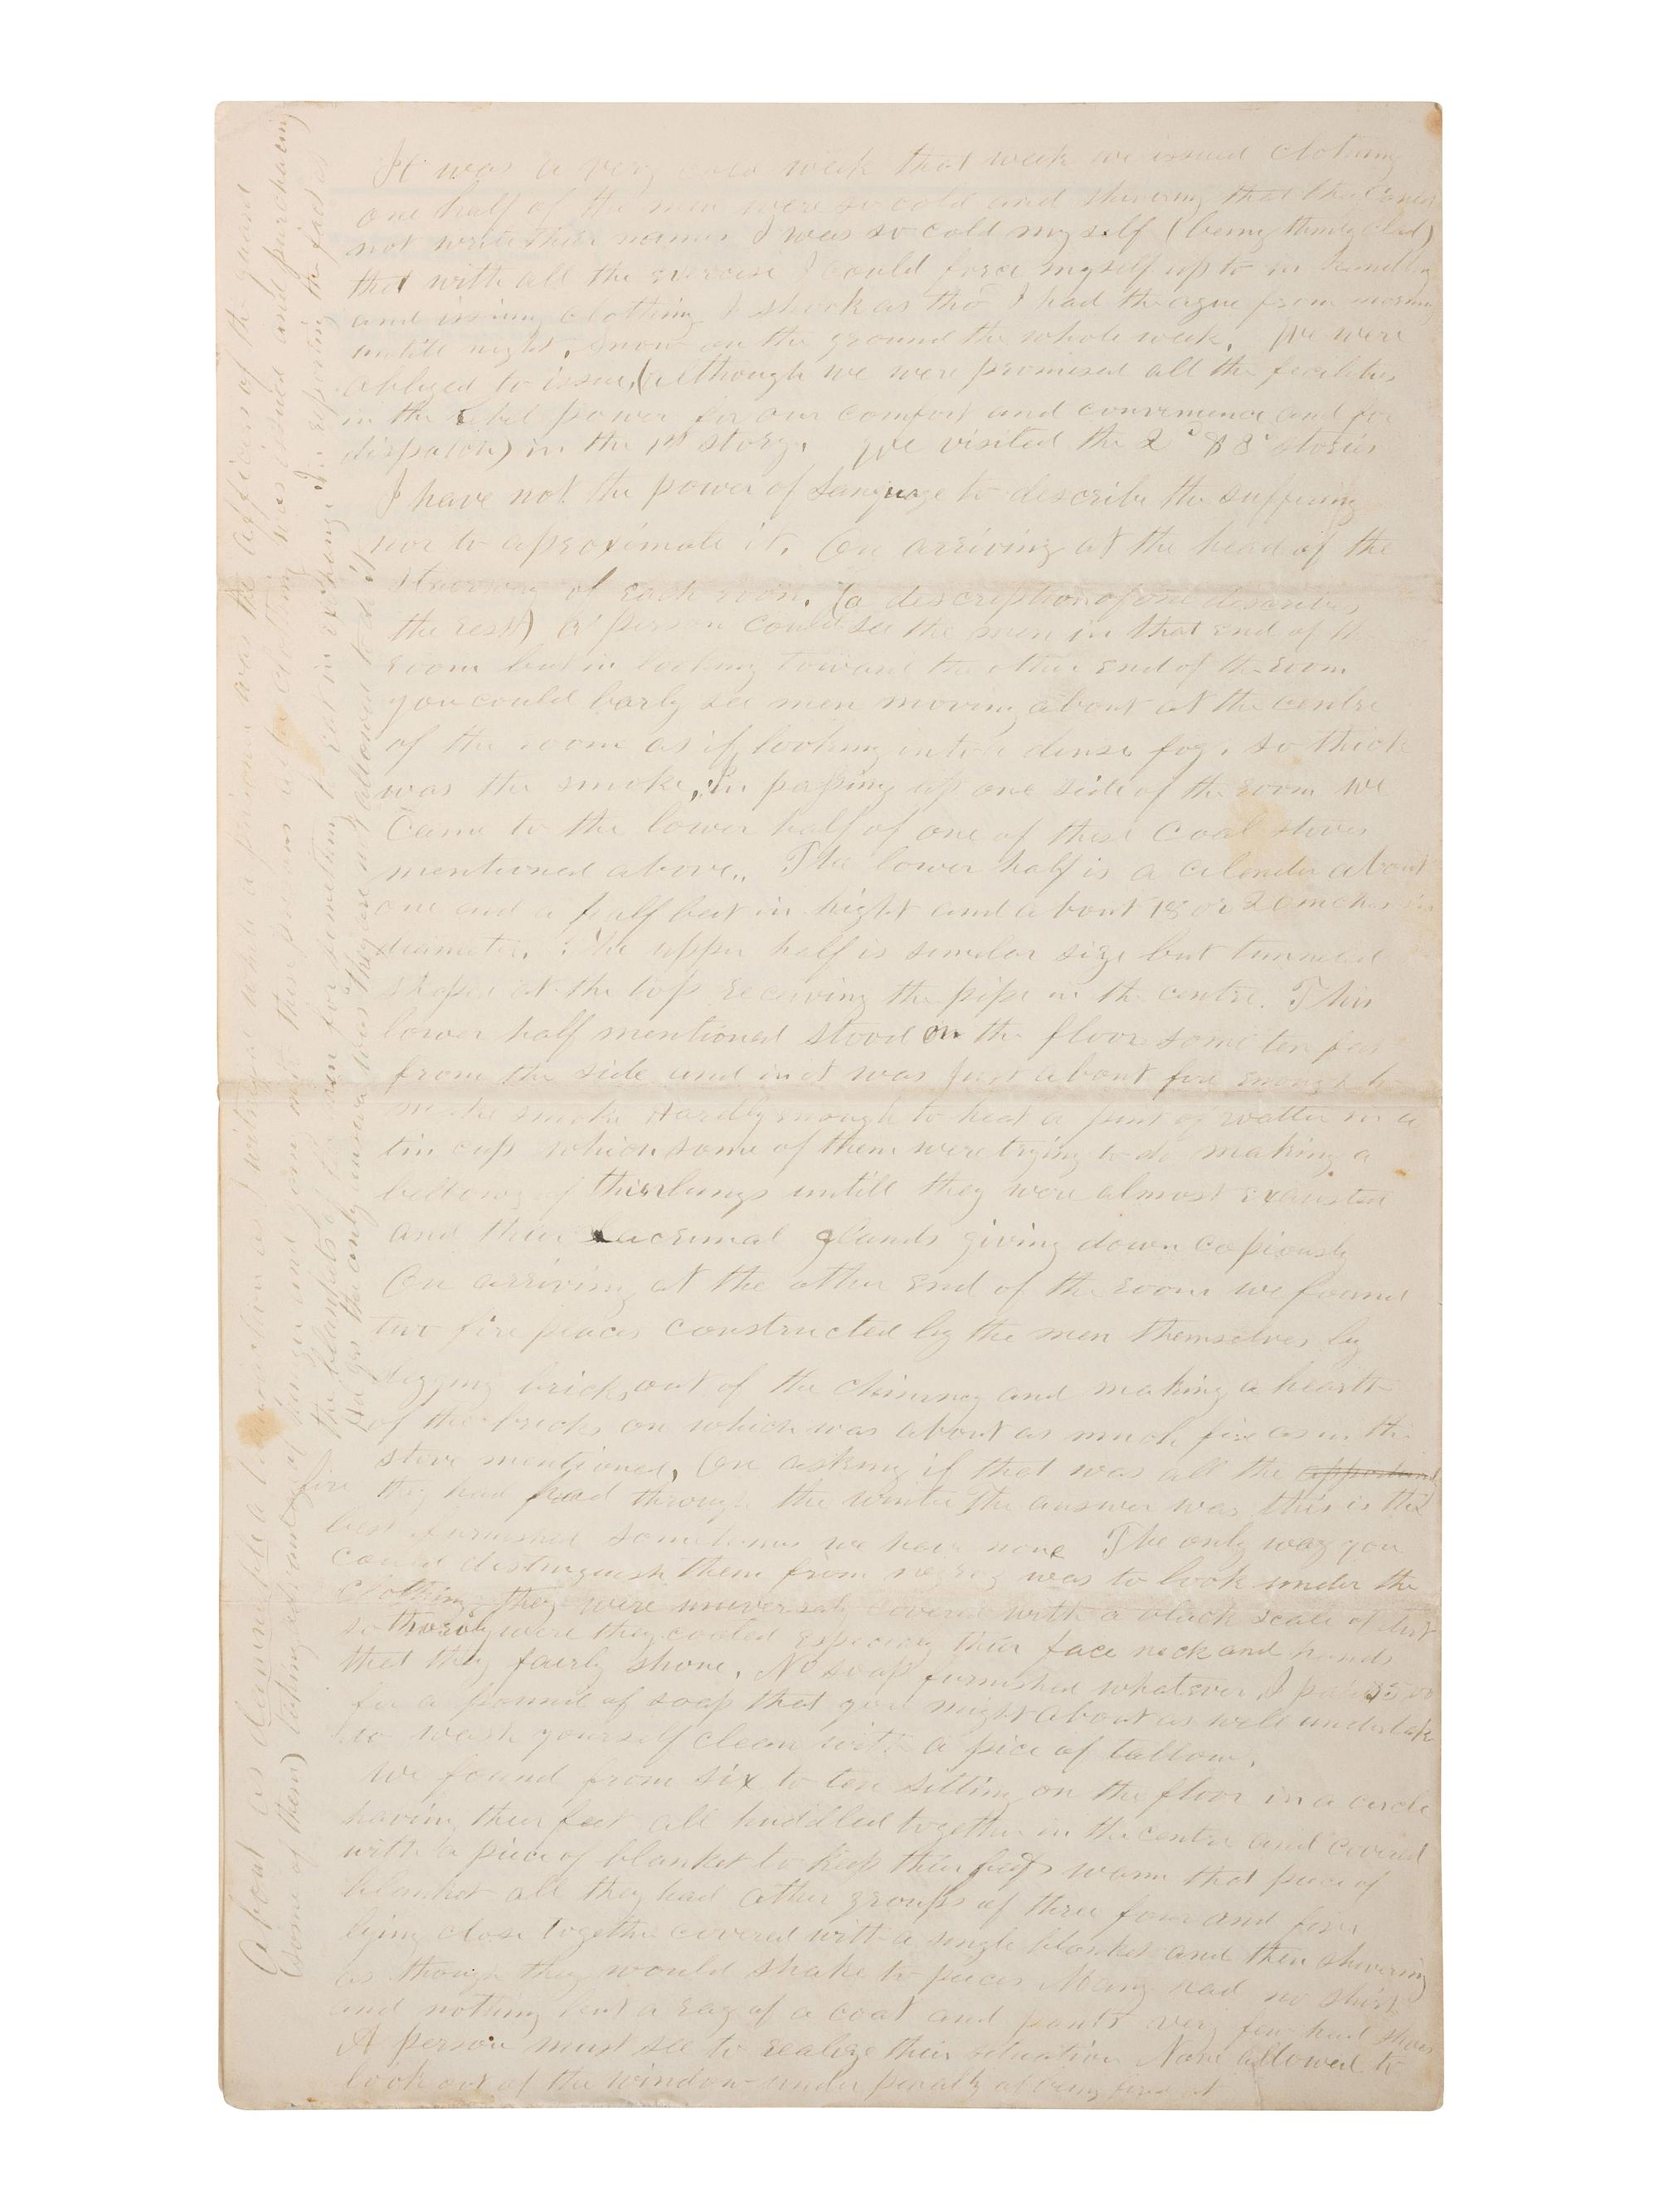 It was a very cold week that week we issued clothing
one half of the men were so cold and shivering that they could
not write their names I was so cold my self (being thinly clad)
that with all the exercise I could force myself up to in handling
and issuing clothing I shook as tho I had the ague from morning
untill night, snow on the ground the whole week. We were
obliged to issue, (although we were promised all the facilities
in the rebel power for our comfort and convenience and for
dispatch) in the 1st story. We visited the 2d & 3d stories
I have not the power of language to describe the suffering
nor to aproximate it. On arriving at the head of the
stairway of each room, (a description of one describes
the rest) a person could see the men in that end of the
room but in looking toward the other end of the room
you could barly see men moving about at the centre
of the room as if looking into a dense fog, so thick
was the smoke, In passing up one side of the room we
came to the lower half of one of these Coal stoves
mentioned above.. The lower half is a celender about
one and a half feet in hight and about 18 or 20 inches in
diameter. The upper half is similar size but tunneled
shaped at the top receiving the pipe in the centre. This
lower half mentioned stood on the floor some ten feet
from the side and in it was just about fire enough to
make smoke Hardly enough to heat a pint of watter in a
tin cup which some of them were trying to do making a
bellows of thier lungs untill they were almost exausted
and their lacrimal glands giving down copiously
On arriving at the other end of the room we found
two fire places constructed by the men themselves by
digging bricks out of the chimney and making a hearth
of the bricks on which was about as much fire as in the
stove mentioned, On asking if that was all the
fire they had had through the winter the answer was this is the
best furnished sometimes we have none The only way you
could distinguish them from negroes was to look under the
clothing they were universaly covered with a black scale of dirt
so thoroly were they coated especialy their face neck and hands
that they fairly shone. No soap furnished whatever, I paid
for a pound of soap that you might about as well undertake
to wash yourself clean with a pice of tallow.
We found from six to ten sitting on the floor in a circle
having their feet all huddled together in the centre and covered
with a piece of blanket to keep their feet warm that piece of
blanket all they had other groups of three four and five
lying close together covered with a single blanket and then shivering
as though they would shake to peices Many had no shirts
and nothing but a rag of a coat and pants very few had shoes
A person must see to realize their situation None allowed to
look out of the window under penalty of being fired at
About as damnable a transaction as I witnessed while a prisoner was the officers of the guard
(some of them) taking advantage of hunger and going into the prison as clothing was issued and purchasing
the blankets of the men for something to eat in exchange. In reporting the fact to
the only answer was "They are not allowed to do it"